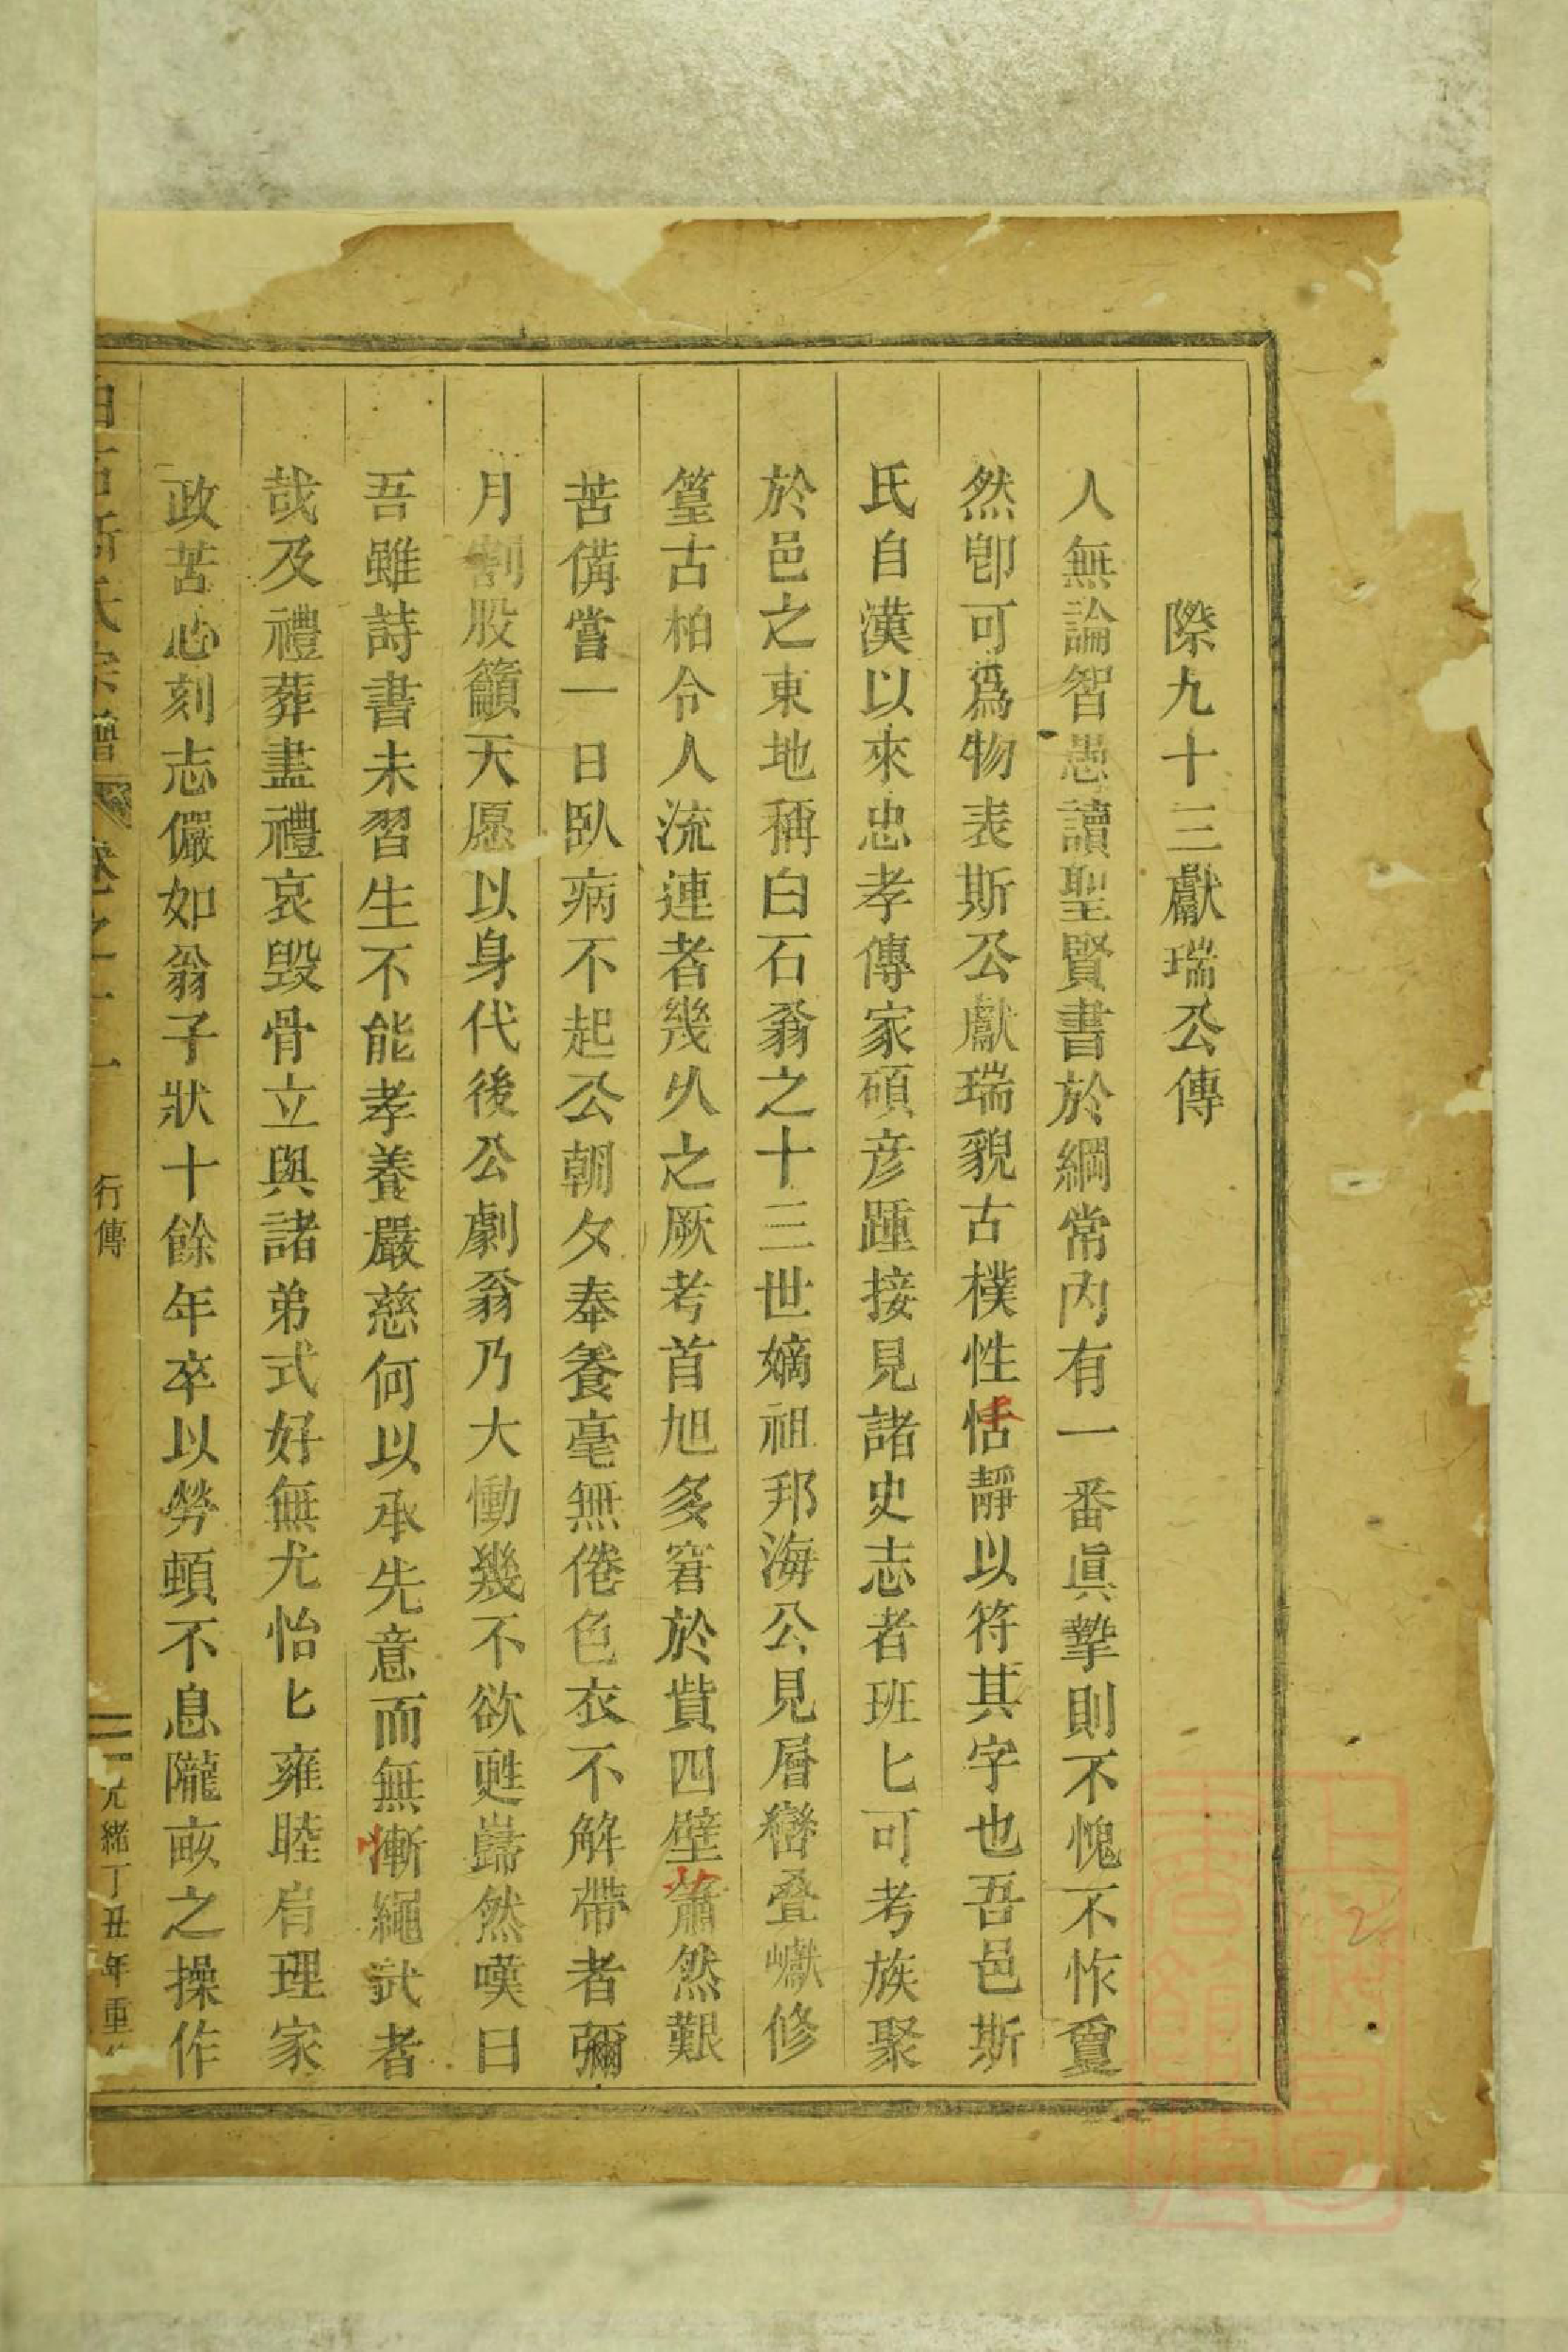 際九十三獻瑞公傳
人無論智愚讀聖賢書於綱常內有一番眞摯則不愧不怍亶
然卽可爲物表斯公獻瑞貌古樸性恬靜以符其字也吾邑斯
氏自漢以來忠孝傳家碩彦踵接見諸史志者班匕可考族聚
於邑之東地稱白石翁之十三世嫡祖邦海公見層巒叠巘修
篁古柏令人流連者幾久之厥考首旭多窘於貲四壁蕭然艱
苦備嘗一日臥病不起公朝夕奉養毫無倦色衣不解帶者彌
月割股籲天愿以身代後公劇翁乃大慟幾不欲甦巋然嘆曰
吾雖詩書未習生不能孝養嚴慈何以承先意而無慚繩武者
哉及禮葬盡禮哀毀骨立與諸弟式好無尤怡匕雍睦肩理家
政苦心刻志儼如翁子狀十餘年卒以勞頓不息隴畝之操作
氏宗譜 卷之十一 行傳 光緒丁丑年重
2